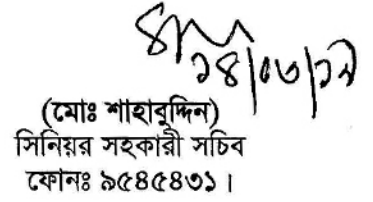 ১৪/০৩/১৯
(মোঃ শাহাবুদ্দিন)
সিনিয়র সহকারী সচিব
ফোনঃ ৯৫৪৫৪৩১।